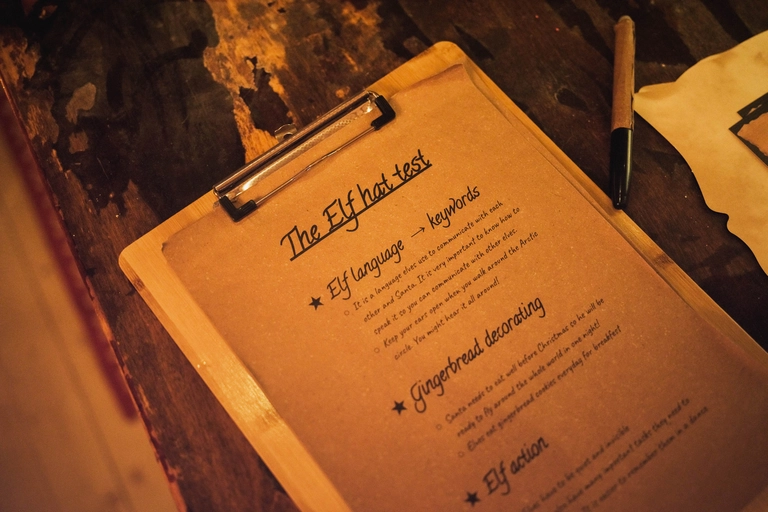 The Elf hat test
★ Elf language → keywords
○ It is a language elves use to communicate with each
other and Santa. It is very important to know how to
speak it so you can communicate with other elves.
○ Keep your ears open when you walk around the Arctic
circle. You might hear it all around!
★ Gingerbread decorating
○ Santa needs to eat well before Christmas so he will be
ready to fly around the whole world in one night!
○ Elves eat gingerbread cookies everyday for breakfast!
★ Elf action
that have to be quiet and invisible
you have many important tasks they need to
is easier to remember them in a dance